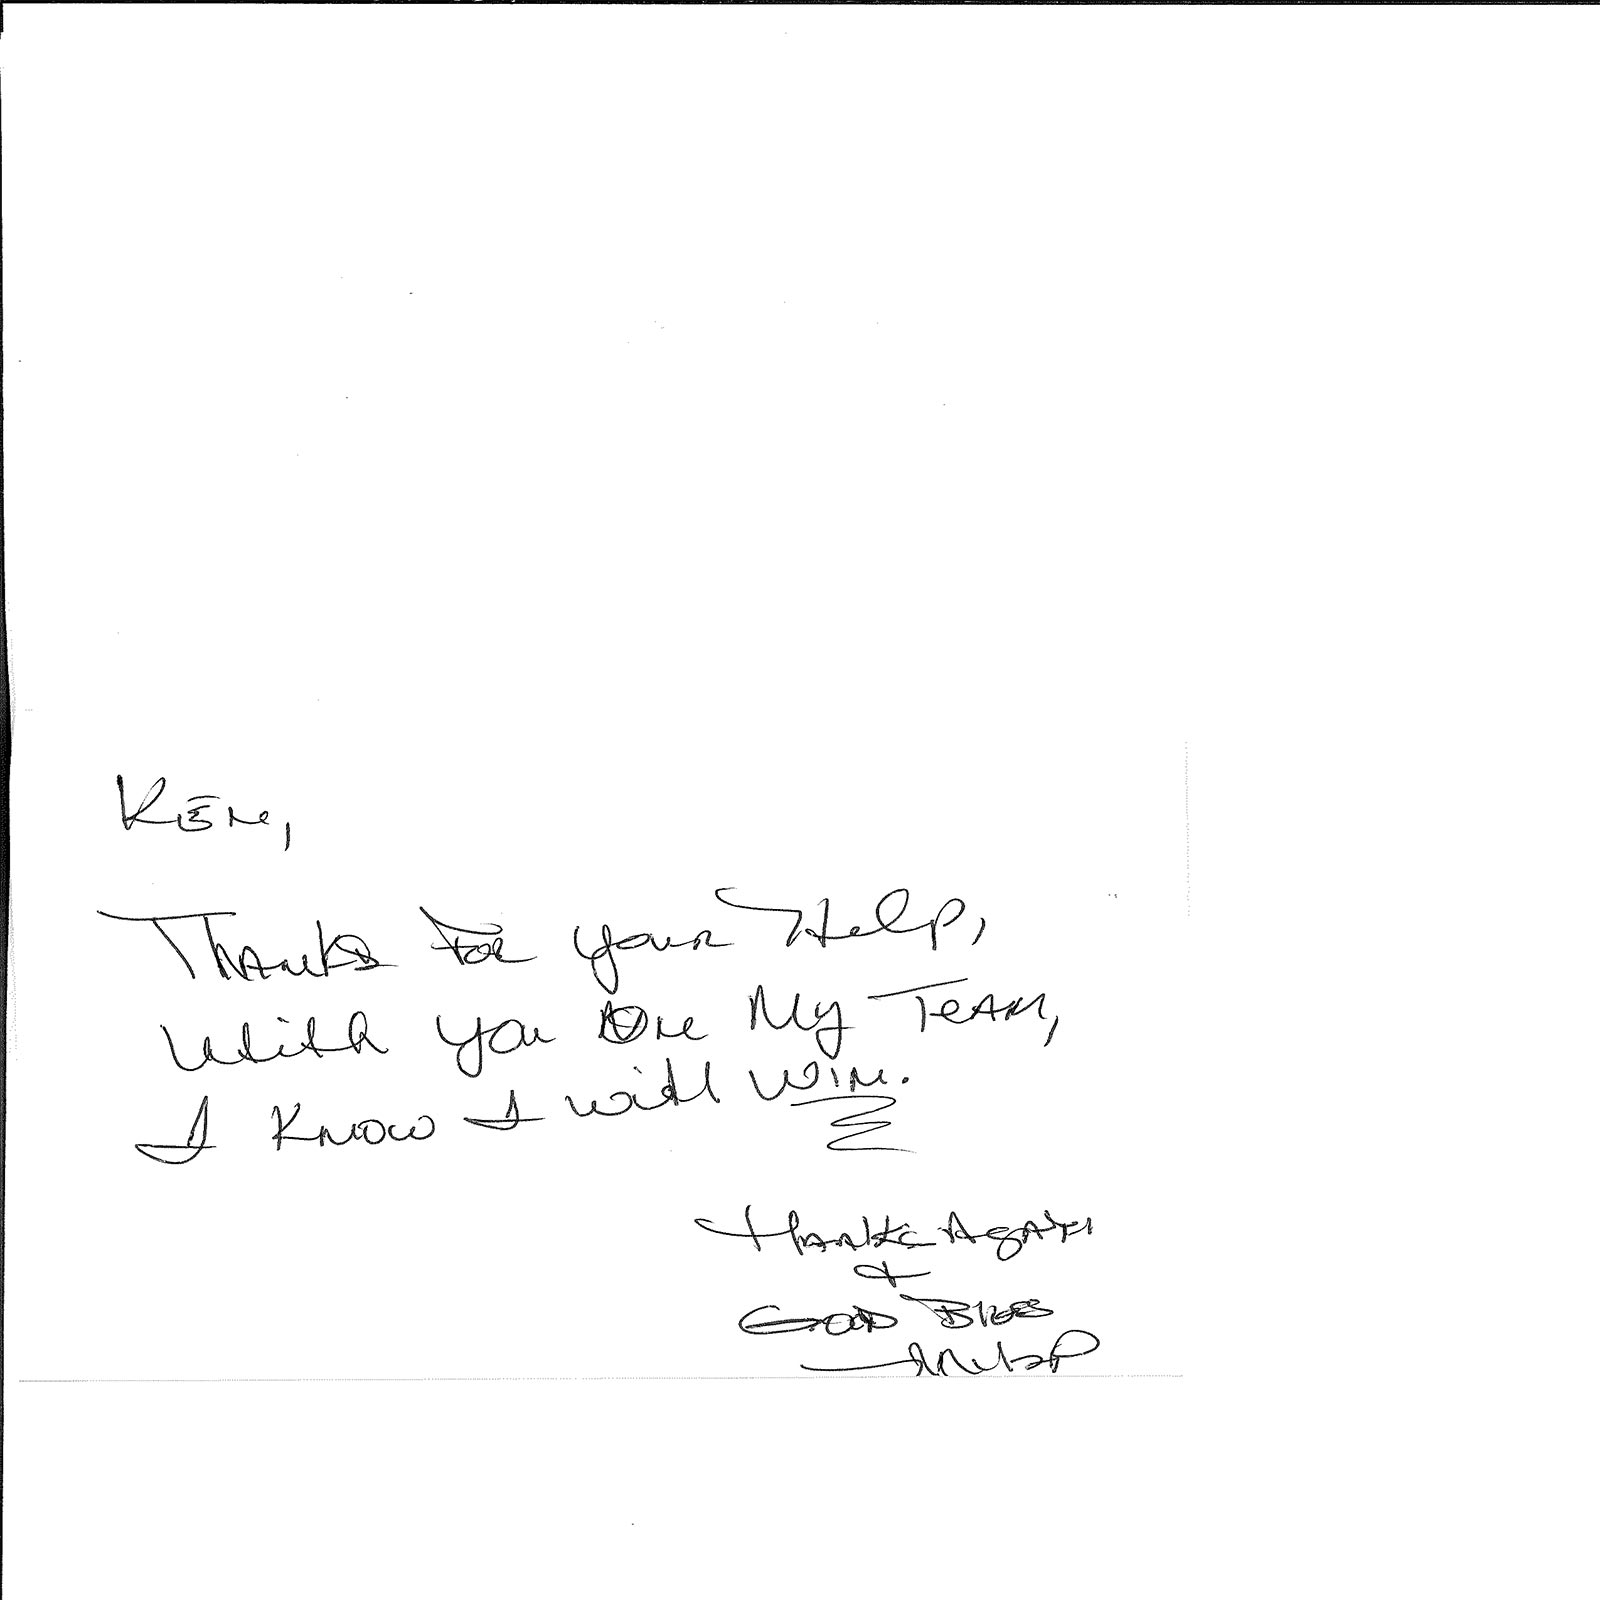 Ken,
Thanks For your Help,
With you on My Team,
I know I will win.
Thanks Again
+
God Bless